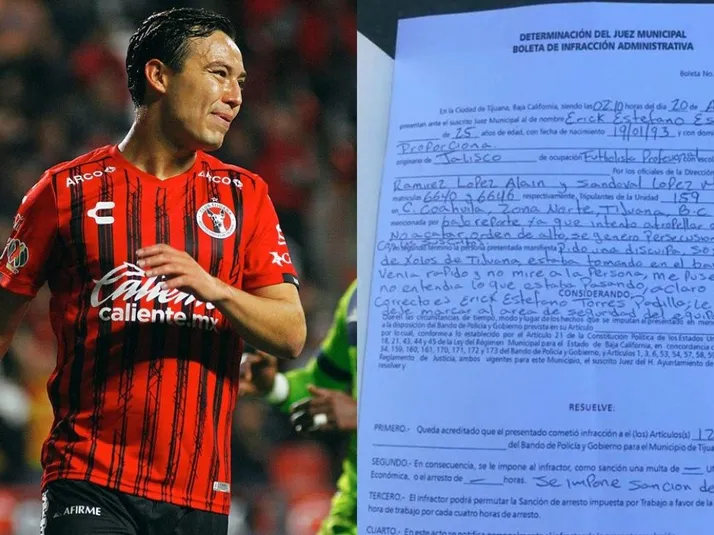 ARCO
ARCO
Caliente
caliente.mx
AFIRME
DETERMINACIÓN DEL JUEZ MUNICIPAL
BOLETA DE INFRACCIÓN ADMINISTRATIVA
Boleta No.
En la Ciudad de Tijuana, Baja California, siendo las 02:10 horas del día 20 de A
presentan ante el suscrito Juez Municipal al de nombre Erick Estefano Es
de 25 años de edad, con fecha de nacimiento 19/01/93 y con domi
Proporciona.
originario de Jalisco de ocupación Futbolista Profesional con escol
Por los oficiales de la Dirección
Ramirez Lopez Alain y Sandoval Lopez V
matriculas 6640 y 6646 respectivamente, Tripulantes de la Unidad 159
en C. Coahuila, Zona Norte, Tijuana, B.C.
mencionada por bajo reporte ya que intento atropellar a
No acatar orden de alto, se genero Persecusion
la persona presentada manifiesta Pido una disculpa, so
de Xolos de Tijuana estaba tomando en el ban
venia rapido y no mire a la Persona, me puse
no entendia lo que estaba Pasando, aclaro
CONSIDERANDO
correcto es Erick Estefano Torres Padilla; le
deje marcar al area de seguridad del equip
Que en las circunstancias de tiempo, modo y lugar de los hechos que se imputan al presentado en men
a la disposición del Bando de Policía y Gobierno prevista en su Artículo
por lo cual, conforme a lo establecido por el Artículo 21 de la Constitución Política de los Estados Un
18, 21, 43, 44 y 45 de la Ley del Régimen Municipal para el Estado de Baja California, en concordancia
34, 159, 160, 161, 170, 171, 172 y 173 del Bando de Policía y Gobierno, y Artículos 1, 3, 6, 53, 54, 57, 58, 5
Reglamento de Justicia, ambos vigentes para este Municipio, el suscrito Juez del H. Ayuntamiento de
resolver y
RESUELVE:
PRIMERO.- Queda acreditado que el presentado cometió infracción a el (los) Artículos(s) 12
del Bando de Policía y Gobierno para el Municipio de Tijuan
SEGUNDO.- En consecuencia, se le impone al infractor, como sanción una multa de — U
Económica, o el arresto de — horas. Se impone Sancion de
TERCERO.- El infractor podrá permutar la Sanción de arresto impuesta por Trabajo a favor de la
de trabajo por cada cuatro horas de arresto.
CUARTO.- En este acto se notifica personalmente al infractor